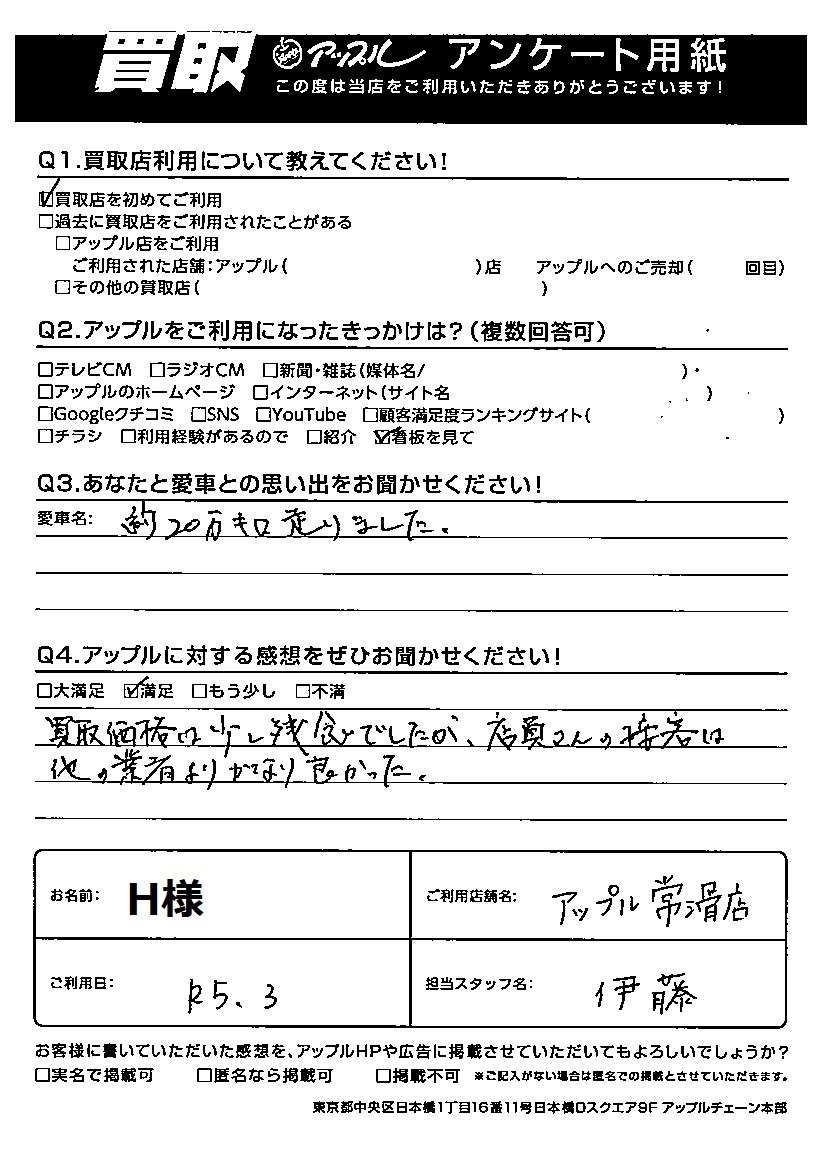 買取 アップル アンケート用紙
この度は当店をご利用いただきありがとうございます!
Q1.買取店利用について教えてください!
☑買取店を初めてご利用
□過去に買取店をご利用されたことがある
□アップル店をご利用
ご利用された店舗:アップル( )店 アップルへのご売却( 回目)
□その他の買取店( )
Q2.アップルをご利用になったきっかけは?(複数回答可)
□テレビCM □ラジオCM □新聞・雑誌(媒体名/ )
□アップルのホームページ □インターネット(サイト名 )
□Googleクチコミ □SNS □YouTube □顧客満足度ランキングサイト( )
□チラシ □利用経験があるので □紹介 ☑看板を見て
Q3.あなたと愛車との思い出をお聞かせください!
愛車名: 約20万キロ走りました。
Q4.アップルに対する感想をぜひお聞かせください!
□大満足 ☑満足 □もう少し □不満
買取価格は少し残念でしたが、店員さんの接客は
他の業者よりかなり良かった。
お名前: H様 ご利用店舗名: アップル常滑店
ご利用日: R5.3 担当スタッフ名: 伊藤
お客様に書いていただいた感想を、アップルHPや広告に掲載させていただいてもよろしいでしょうか?
□実名で掲載可 □匿名なら掲載可 □掲載不可 ※ご記入がない場合は匿名での掲載とさせていただきます。
東京都中央区日本橋1丁目16番11号日本橋Dスクエア9F アップルチェーン本部